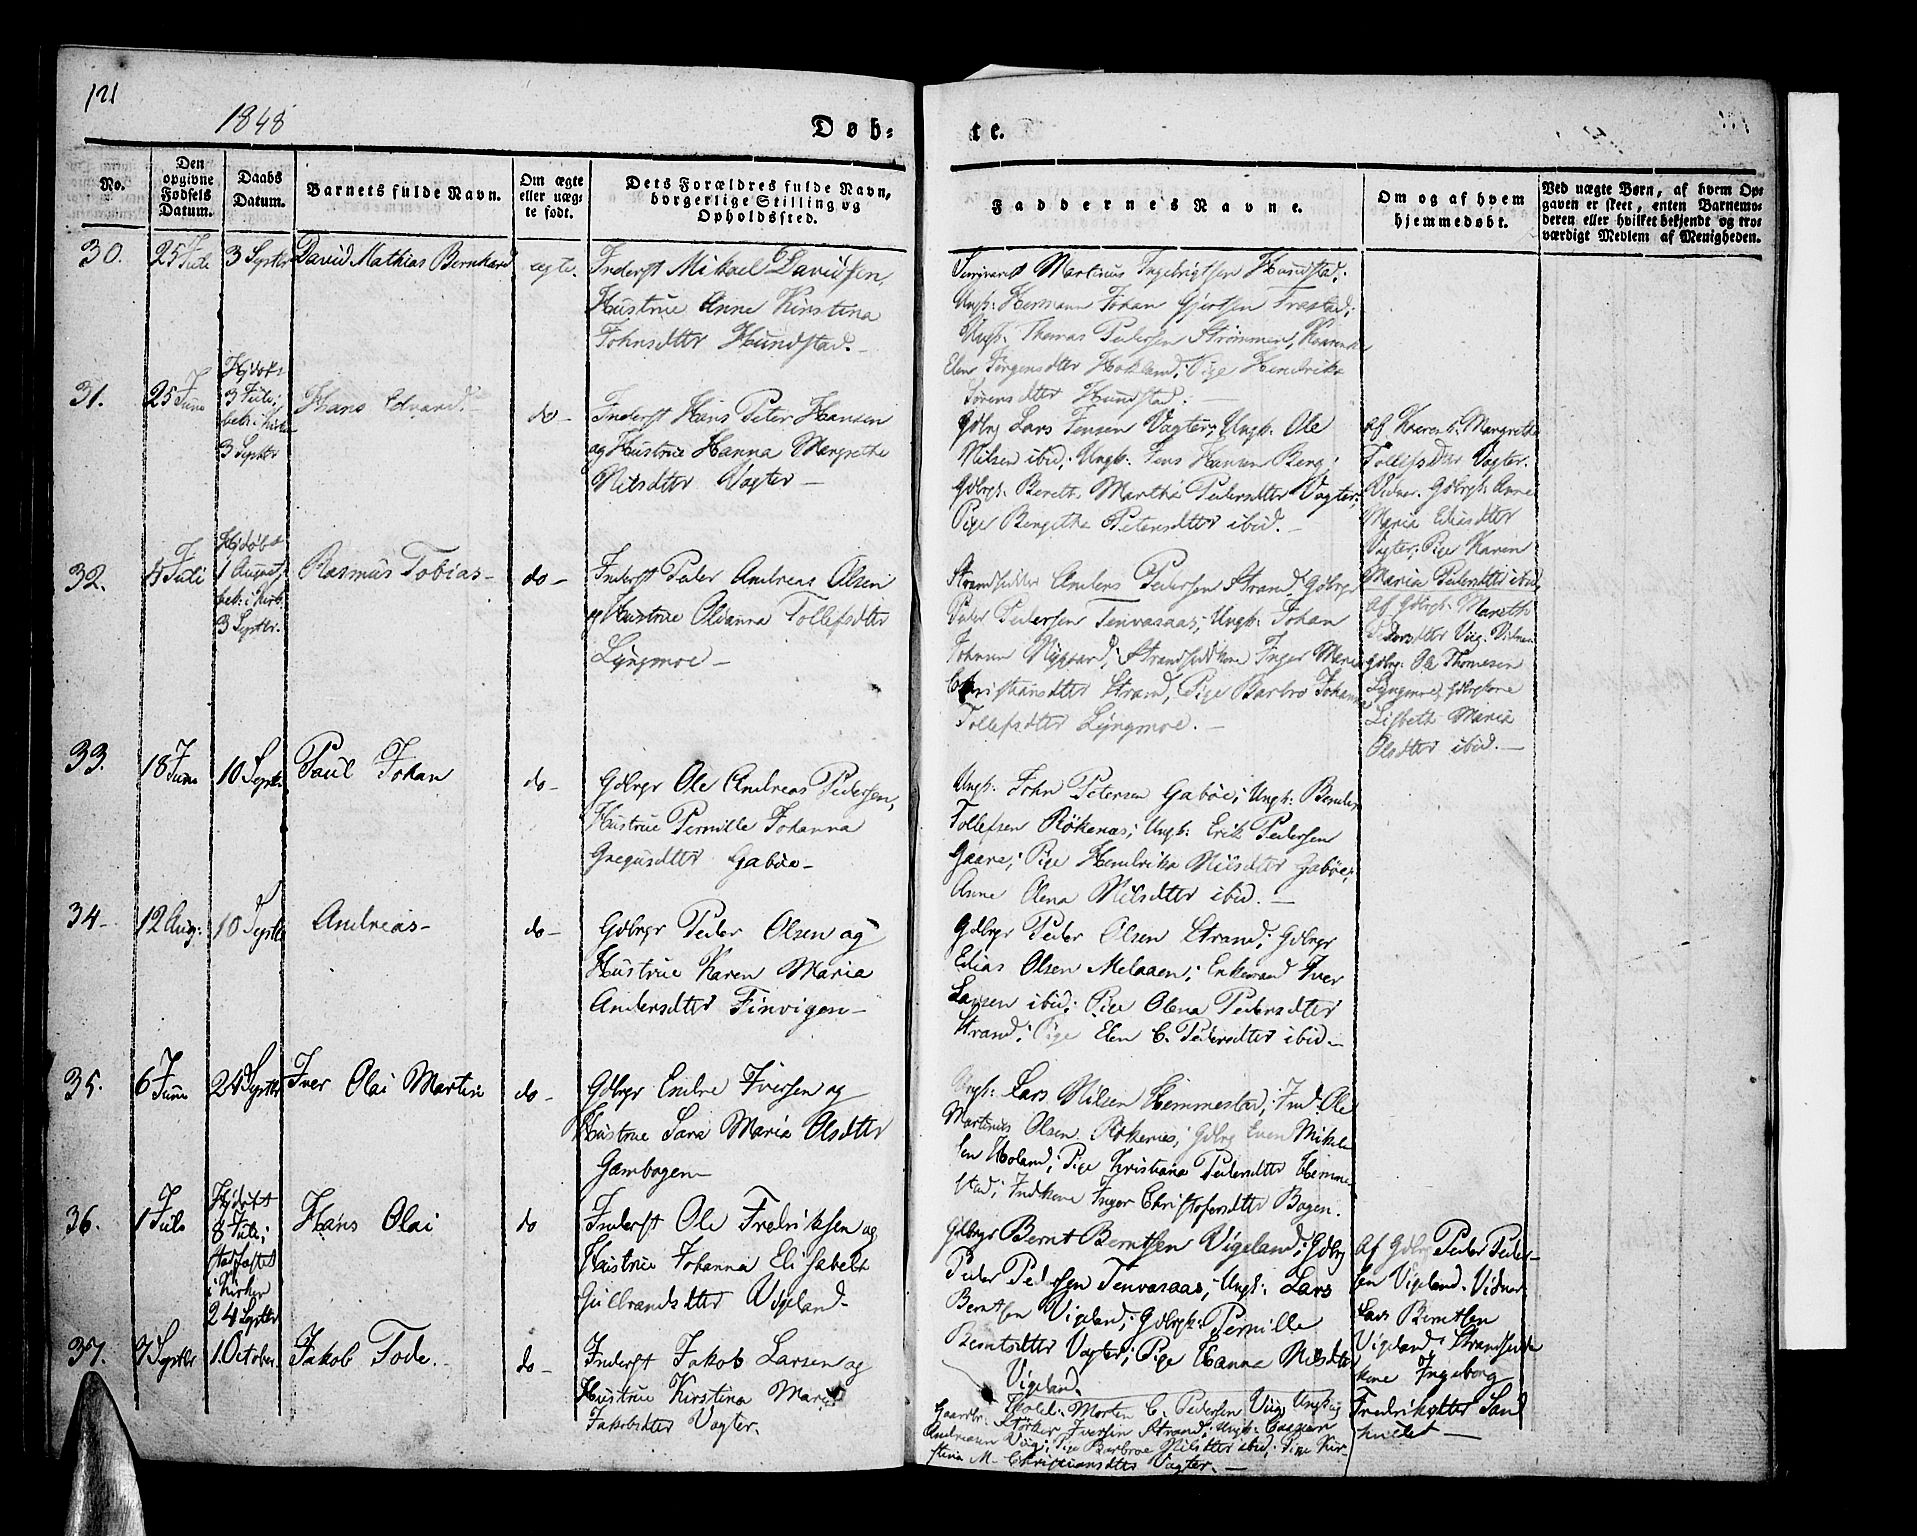 121
1848
Døb-
te.
No.
Den
opgivne
Fødsels
Datum.
Daabs
Datum.
Barnets fulde Navn.
Om ægte
eller uæg-
te født.
Dets Forældres fulde Navn,
borgerlige Stilling og
Opholdssted.
Faddernes Navne.
Om og af hvem
hjemmedøbt.
Ved uægte Børn, af hvem Op-
gaven er skeet, enten Barnemo-
deren eller hvilket bekjendt og tro-
værdigt Medlem af Menigheden.
30.
25 Juli
3 Septbr
David Mathias Bernhard
ægte.
Inderst Mikael Davidsen,
Hustrue Anne Kirstina
Johnsdtter Hundstad. –
Martinus Ingebrigtsen Hundstad;
Ungk: Hermann Johan Gjertsen Trastad;
Ungk: Thomas Pedersen Strømmen; Kaarende
Elen Jørgensdtter Hokland; Pige Hendrika
Sørensdtter Hundstad. –
31.
25 Juni
Hjdøbt
3 Juli;
bek: i Kirken
3 Septbr
Hans Edvard. –
do –
Inderst Hans Peter Hansen
og Hustrue Hanna Margrethe
Nilsdtter Vagter –
Gdbrg Lars Jensen Vagter; Ungk: Ole
Nilsen ibid; Ungk: Jens Hansen Berg;
Gdbrgk: Bereth Martha Pedersdtter Vagter;
Pige Bergithe Petersdtter ibid. –
Af Margrethe
Tollefsdtter Vagter.
Vidner. Gdbrgk: Anne
Maria Eliasdtter
Vagter; Pige Karen
Maria Pedersdtter ibid.
32.
5 Juli
Hjdøbt
1 August;
bek: i Kirk.
3 Septbr.
Rasmus Tobias –
do –
Inderst Peter Andreas Olsen
og Hustrue Oleanna Tollefsdtter
Lyngmoe –
Strandsidder Anders Pedersen Strand; Gdbrgr
Peter Pedersen Tenvasaas; Ungk: Johan
Johnsen Nygaard; Strandsiddkone Inger Maria
Christiansdtter Strand; Pige Barbro Johanna
Tollefsdtter Lyngmoe. –
Af Gdbrgk: Mareth
Pedersdtter Viig. Vidner
Gdbrg: Ole Thomesen
Lyngmoe, Gdbrgkone
Lisbeth Maria
Olsdtter ibid. –
33.
18 Juni
10 Septbr.
Paul Johan
do –
Gdbrgr Ole Andreas Pedersen,
Hustrue Pernille Johanna
Gregusdtter Gabøe –
Ungk: John Petersen Gabøe; Ungk: Bendix
Tollefsen Røkenæs; Ungk: Erik Pedersen
Gaare; Pige Hendrika Nilsdtter Gabøe;
Anne Olena Nilsdtter ibid. –
34 –
12 Aug:
10 Septbr
Andreas –
do –
Gdbrgr Peder Olsen og
Hustrue Karen Maria
Andersdtter Finvigen –
Gdbrgr Peder Olsen Strand; Gdbrgr
Edias Olsen Melaaen; Enkemand Iver
Larsen ibid; Pige Olena Pedersdtter
Strand; Pige Elen C. Pedersdtter ibid –
35.
6 Juni
24 Septbr
Iver Olai Martin
do –
Gdbrgr Endre Iversen og
Hustrue Sara Maria Olsdtter
Gambogen –
Ungk: Lars Nilsen Hemmestad; Ind. Ole
Martinus Olsen Røkenes; Gdbrg Even Mikel-
sen Holand; Pige Kristiana Pedersdtter Hemme
stad; Indkone Inger Christofersdtter Bogen.
36.
1 Juli
Hjdøbt
8 Juli;
stadfæstet
i Kirken
24 Septbr
Hans Olai
do
Inderst Ole Fredriksen og
Hustrue Johanna Elisabeth
Gulbrandsdtter Vigeland –
Gdbrgr Bernt Berntsen Vigeland; Gdbrg
Peder Pedersen Tenvasaas; Ungk: Lars
Berntsen Vigeland; Gdbrgk: Pernille
Berntsdtter Vagter; Pige Hanna Nilsdtter
Vigeland.
Af Gdbrg Peder Peder-
sen Vigeland. Vidner
Lars Berntsen
Vigeland; Strandsidder
kone Ingeborg
Fredriksdtter Sand
37.
7 Septbr
1. October.
Jakob Tode. –
do –
Inderst Jakob Larsen og
Hustrue Kirstina Maria
Jakobsdtter Vagter.
Morten C. Pedersen Viig; Ungk
Iversen Strand; Ungk: Casper
Andreasen Viig; Pige Barbroe Nilsdtter ibid; Pige Kir-
stina M. Christiansdtter Vagter. –